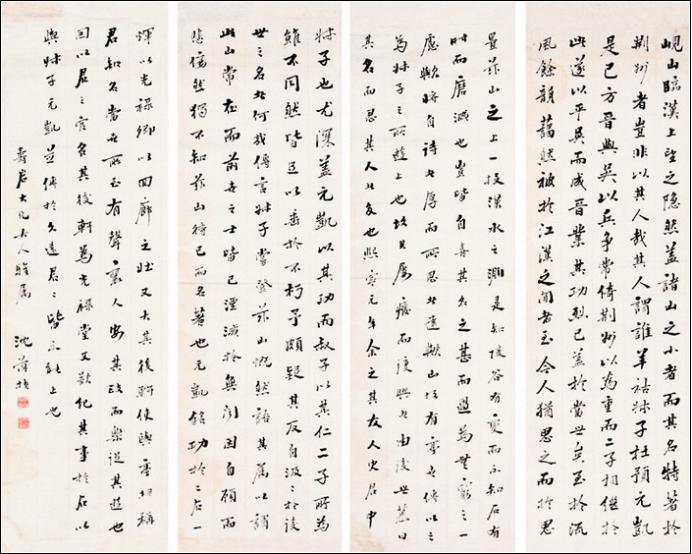 峴山臨漢上望之隱然蓋諸山之小者而其名特著於
荊州者豈非以其人哉其人謂誰羊祜叔子杜預元凱
是已方晉與吳以兵爭常倚荊州以為重而二子相繼於
此遂以平吳而成晉業其功烈已蓋於當世矣至於流
風餘韻藹然被於江漢之間者至今人猶思之而於思
置茲山之上一投漢水之淵是知陵谷有變而不知石有
時而磨滅也豈皆自喜其名之甚而過為無窮之
慮歟將自待者厚而所思者遠歟山故有亭世傳以
為叔子之所遊止也故其屢廢而復興者由後世慕
其名而思其人者多也熙寧元年余之其友人史君中
叔子也尤深蓋元凱以其功而叔子以其仁二子所為
雖不同然皆足以垂於不朽予頗疑其反自汲汲於後
世之名者何哉傳言叔子嘗登茲山慨然語其屬以謂
此山常在而前世之士皆已湮滅於無聞因自顧而
悲傷然獨不知茲山待己而名著也元凱銘功於二石一
煇以光祿卿以回廊之壯又大其後軒使與亭相稱
君知名當世所至有聲襄人安其政而樂從其遊也
因以君之官名其後軒為光祿堂又欲紀其事於石以
與叔子元凱並傳於久遠君皆不能止也
大兄大人雅屬 沈葆楨